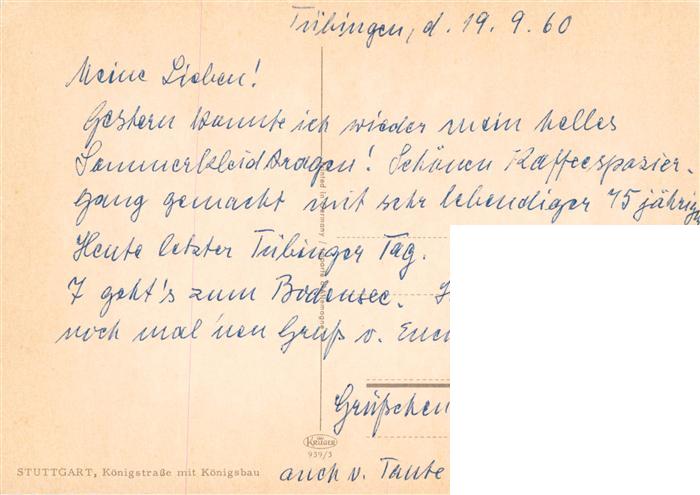 Tübingen, d. 19. 9. 60
Meine Lieben!
Gestern konnte ich wieder mein helles
Sommerkleid tragen! Schönen Kaffeespazier-
gang gemacht mit sehr lebendiger 75 jährig
Heute letzter Tübinger Tag.
7 geht's zum Bodensee.
noch mal 'nen Gruß v. Euch
Grüßchen
auch v. Tante
KRÜGER
939/3
STUTTGART, Königstraße mit Königsbau